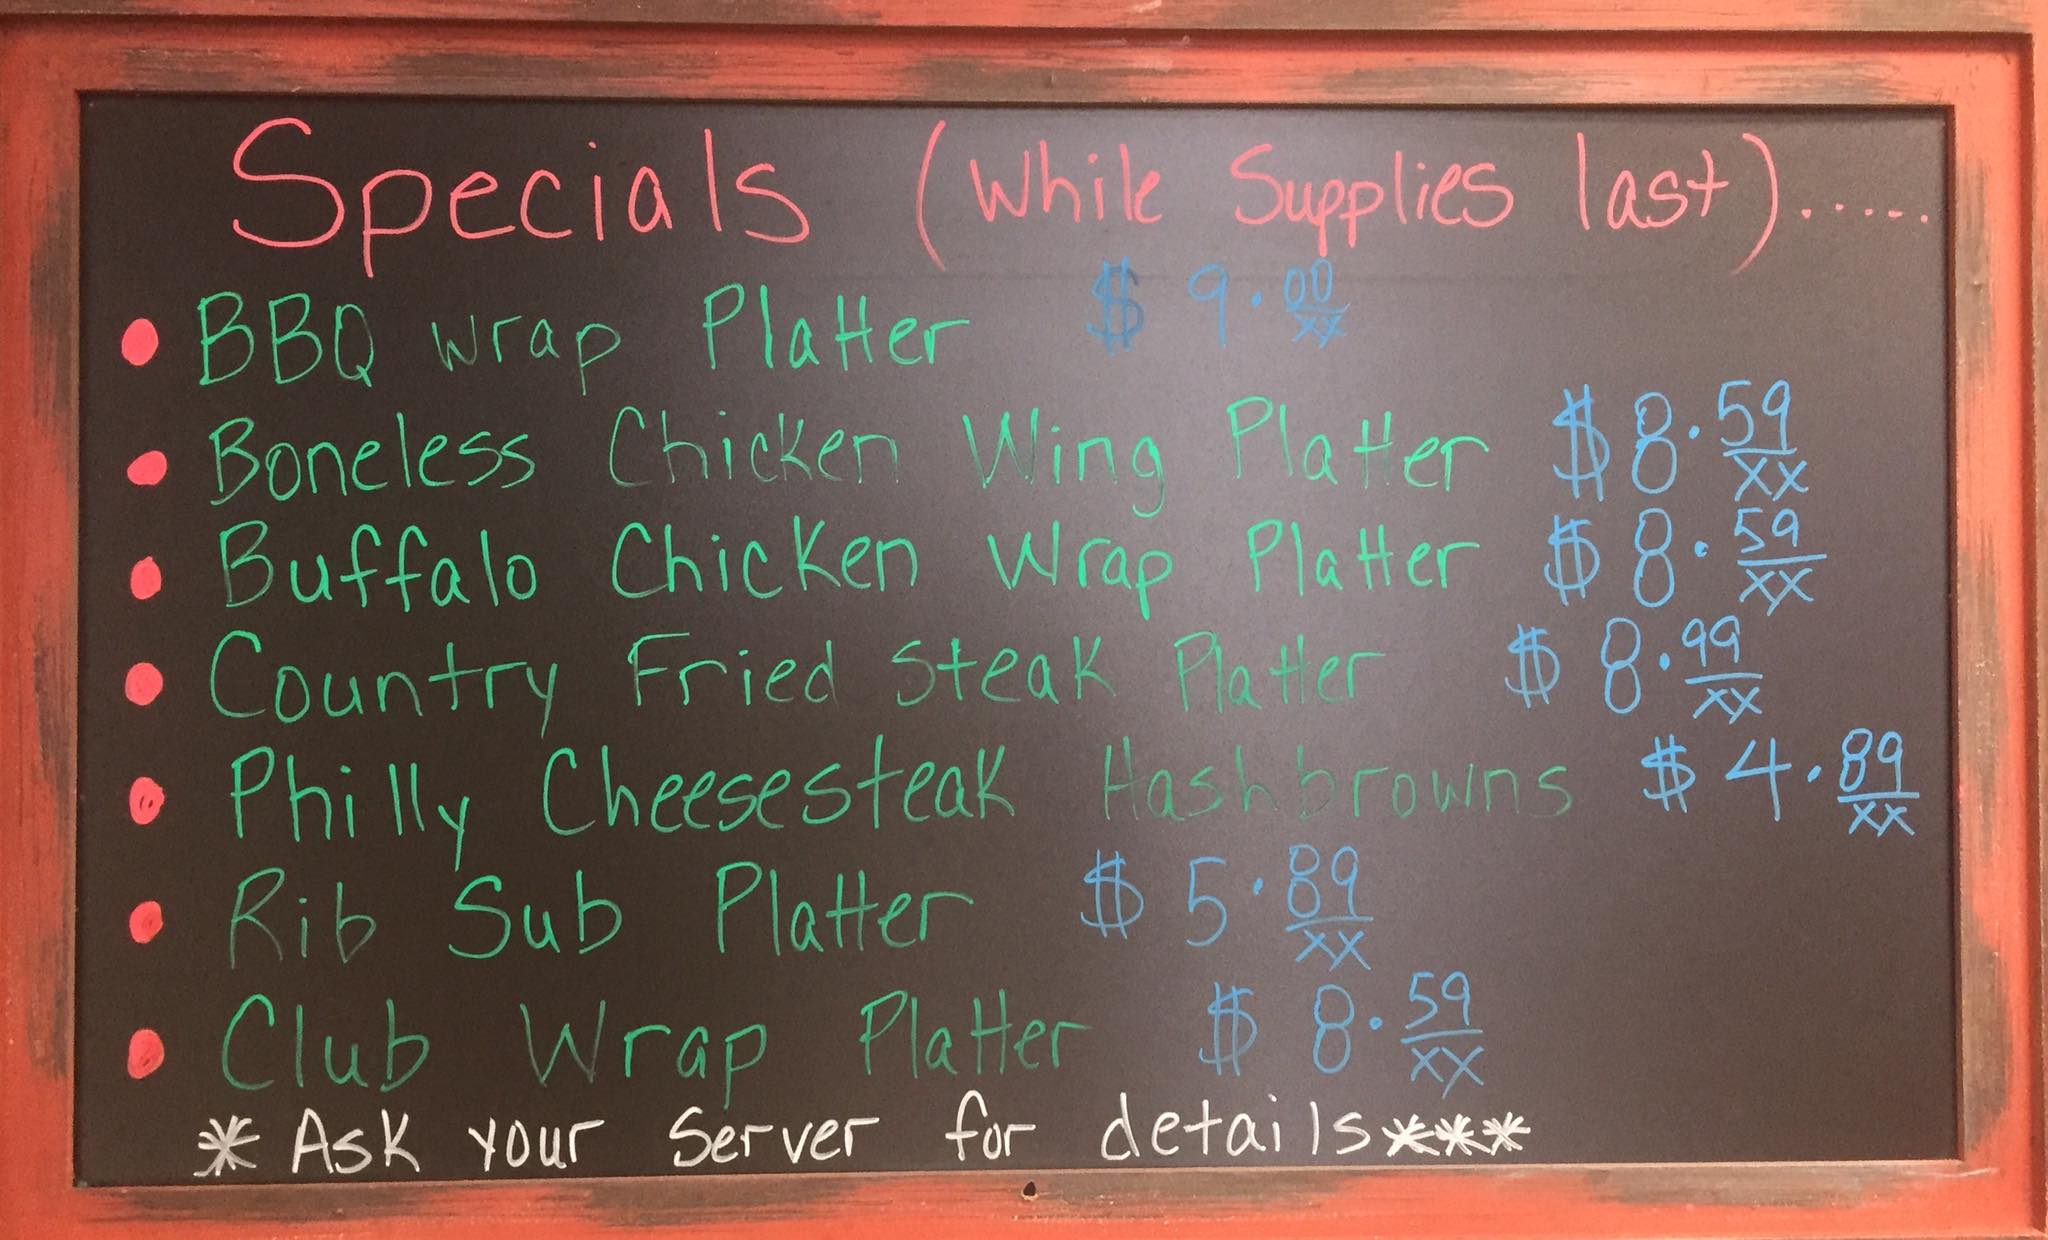 Specials (While Supplies last).....
• BBQ wrap Platter $ 9.00/xx
• Boneless Chicken Wing Platter $ 8.59/xx
• Buffalo Chicken Wrap Platter $ 8.59/xx
• Country Fried Steak Platter $ 8.99/xx
• Philly Cheesesteak Hashbrowns $ 4.89/xx
• Rib Sub Platter $ 5.89/xx
• Club Wrap Platter $ 8.59/xx
* Ask your Server for details***